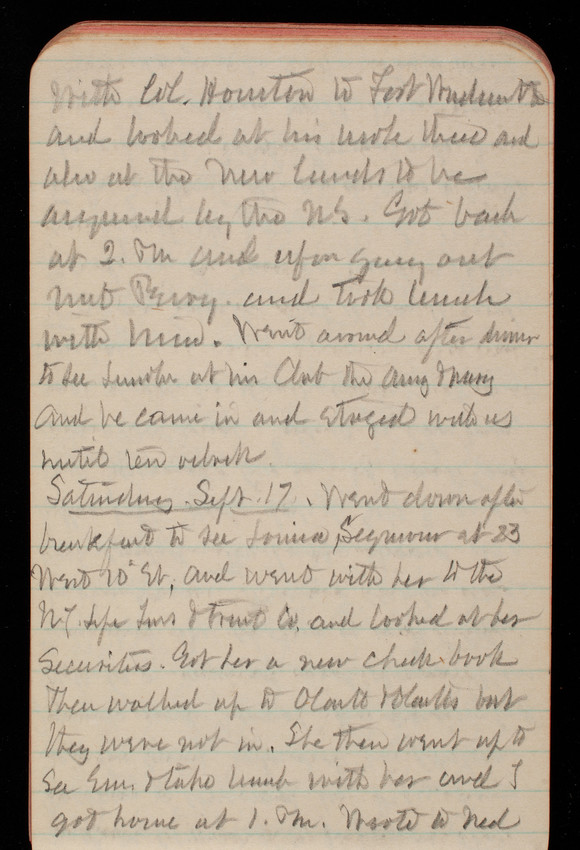 with Col. Houston to Fort Wadsworth
and looked at his work there and
also at the new lands to be
acquired by the U.S. Got back
at 2. PM and upon going out
met Percy. and took lunch
with him. Went around after dinner
to see at his Club the Army & Navy
and he came in and stayed with us
until ten oclock.
Saturday. Sept. 17. Went down after
breakfast to see Louisa Seymour at 23
West 10" St, and went with her to the
N.Y. Life Ins & Trust Co. and looked at her
Securities. Got her a new check book
Then walked up to but
they were not in. She then went up to
see Em. & take lunch with her and I
got home at 1. PM. Wrote to Ned